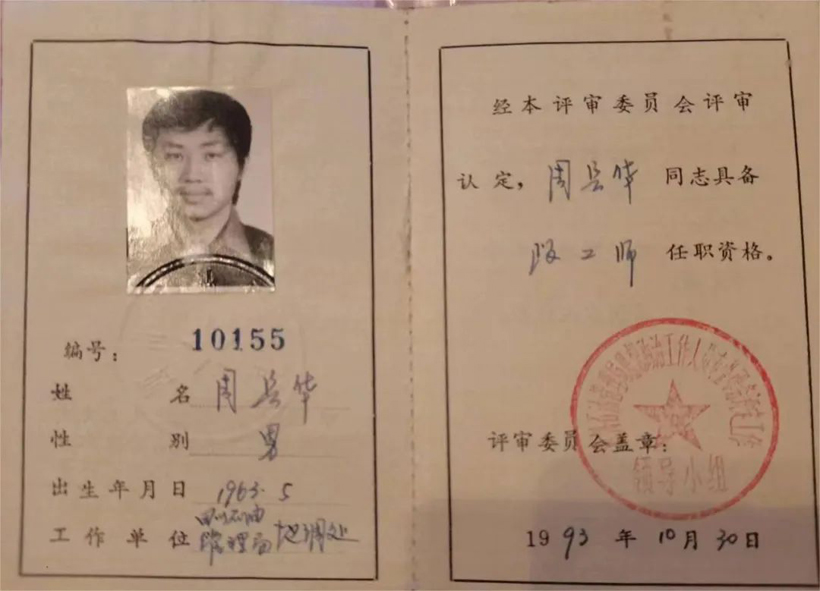 编号: 10155
姓名 周长华
性别 男
出生年月日 1963.5
工作单位 四川石油管理局 地调处
经本评审委员会评审
认定, 周长华 同志具备
政工师 任职资格。
评审委员会盖章:
领导小组
1993年10月30日